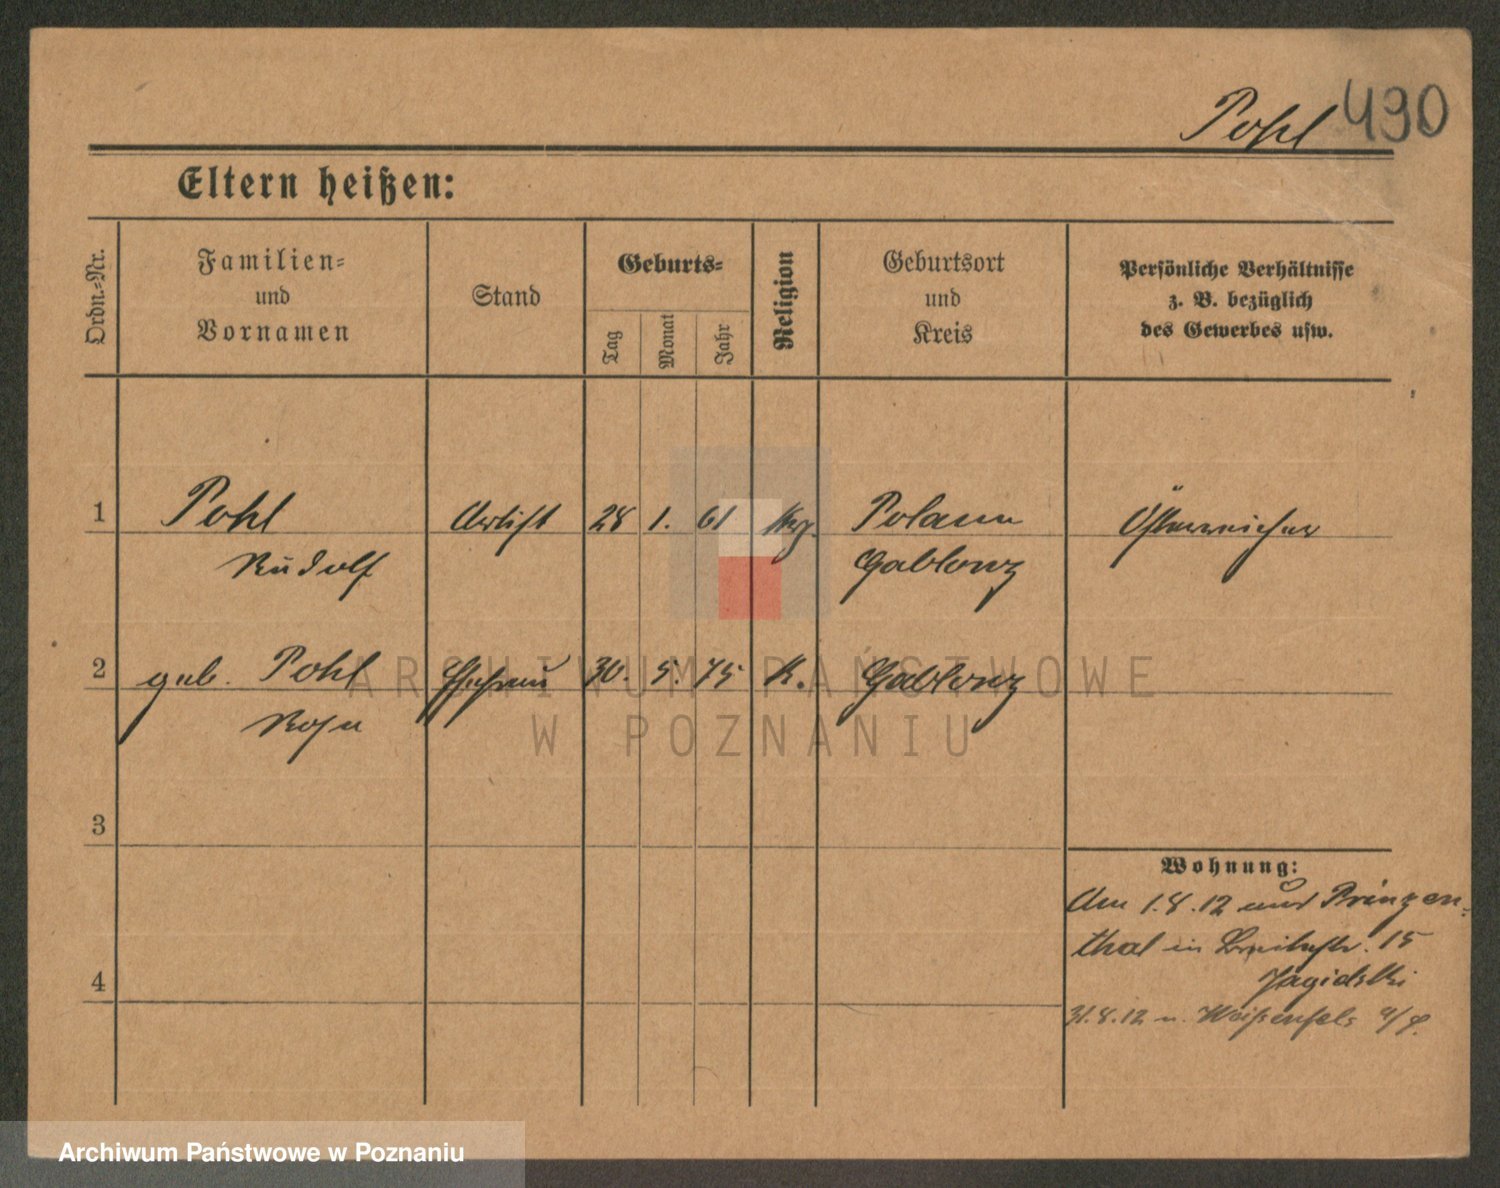 Pohl 490
Eltern heißen:
Ordn.-Nr.
Familien- und Vornamen
Stand
Geburts-
Tag
Monat
Jahr
Religion
Geburtsort und Kreis
Persönliche Verhältnisse z. B. bezüglich des Gewerbes usw.
1 Pohl Artist 28 1. 61 Polaun Österreicher
Rudolf Gablonz
2 geb. Pohl Ehefrau 30. 5. 75 K. Gablonz
Rosa
3
4
Wohnung:
Am 1.8.12 aus Prinzen-
thal in 15
Jagidski
31.8.12 n. Weißenfels a/S.
ARCHIWUM PAŃSTWOWE
W POZNANIU
Archiwum Państwowe w Poznaniu